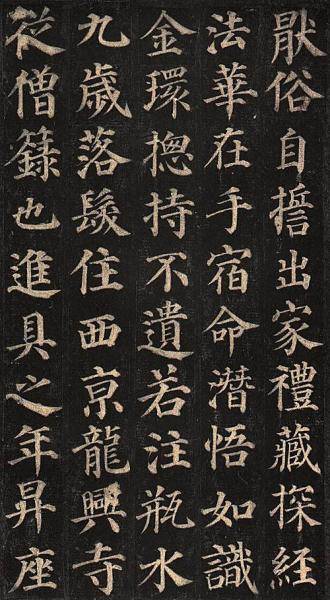 猒俗自誓出家禮藏探經
法華在手宿命潛悟如識
金環揔持不遺若注瓶水
九歲落髮住西京龍興寺
從僧籙也進具之年昇座